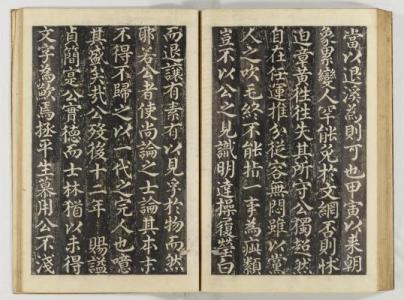 當以退溪爲則可也甲寅以來朝
象累變人罕能免於文網否則怵
迫章黃往往失其所守公獨超然
自在任運推分從容無悶雖以黨
人之吹毛終不能指一事爲疵纇
豈不以公之見識明達操履瑩白
而退讓有素有以見孚於物而然
耶若公者使尚論之士論其本末
不得不歸之以一代之完人也噫
其盛矣哉公歿後十二年 賜謚
貞簡寔公實德而士林猶以未得
文字爲歉焉拯平生慕用公不淺